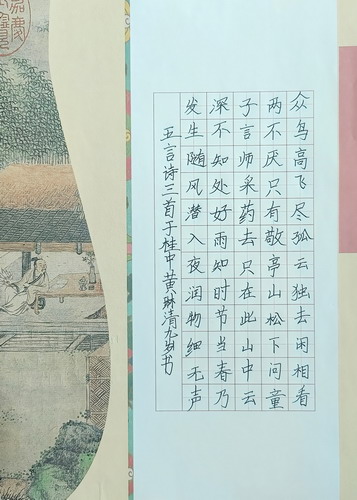 众鸟高飞尽孤云独去闲相看
两不厌只有敬亭山松下问童
子言师采药去只在此山中云
深不知处好雨知时节当春乃
发生随风潜入夜润物细无声
五言诗三首于桂中黄琳清九岁书